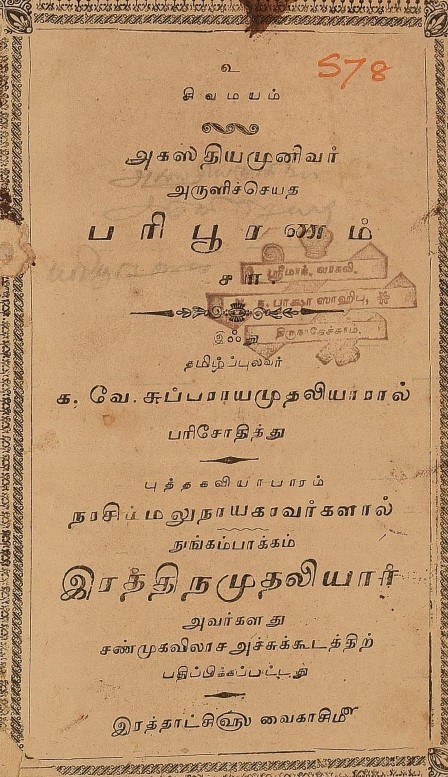 உ
S78
சிவமயம்
அகஸ்தியமுனிவர்
அருளிச்செய்த
பரிபூரணம்
இஃது
தமிழ்ப்புலவர்
க. வே. சுப்பராயமுதலியாரால்
பரிசோதித்து
புத்தகவியாபாரம்
நரசிம்மலுநாயகரவர்களால்
நுங்கம்பாக்கம்
இரத்திநமுதலியார்
அவர்களது
சண்முகவிலாசஅச்சுக்கூடத்திற்
பதிப்பிக்கப்பட்டது
இரத்தாட்சி௵ வைகாசி௴